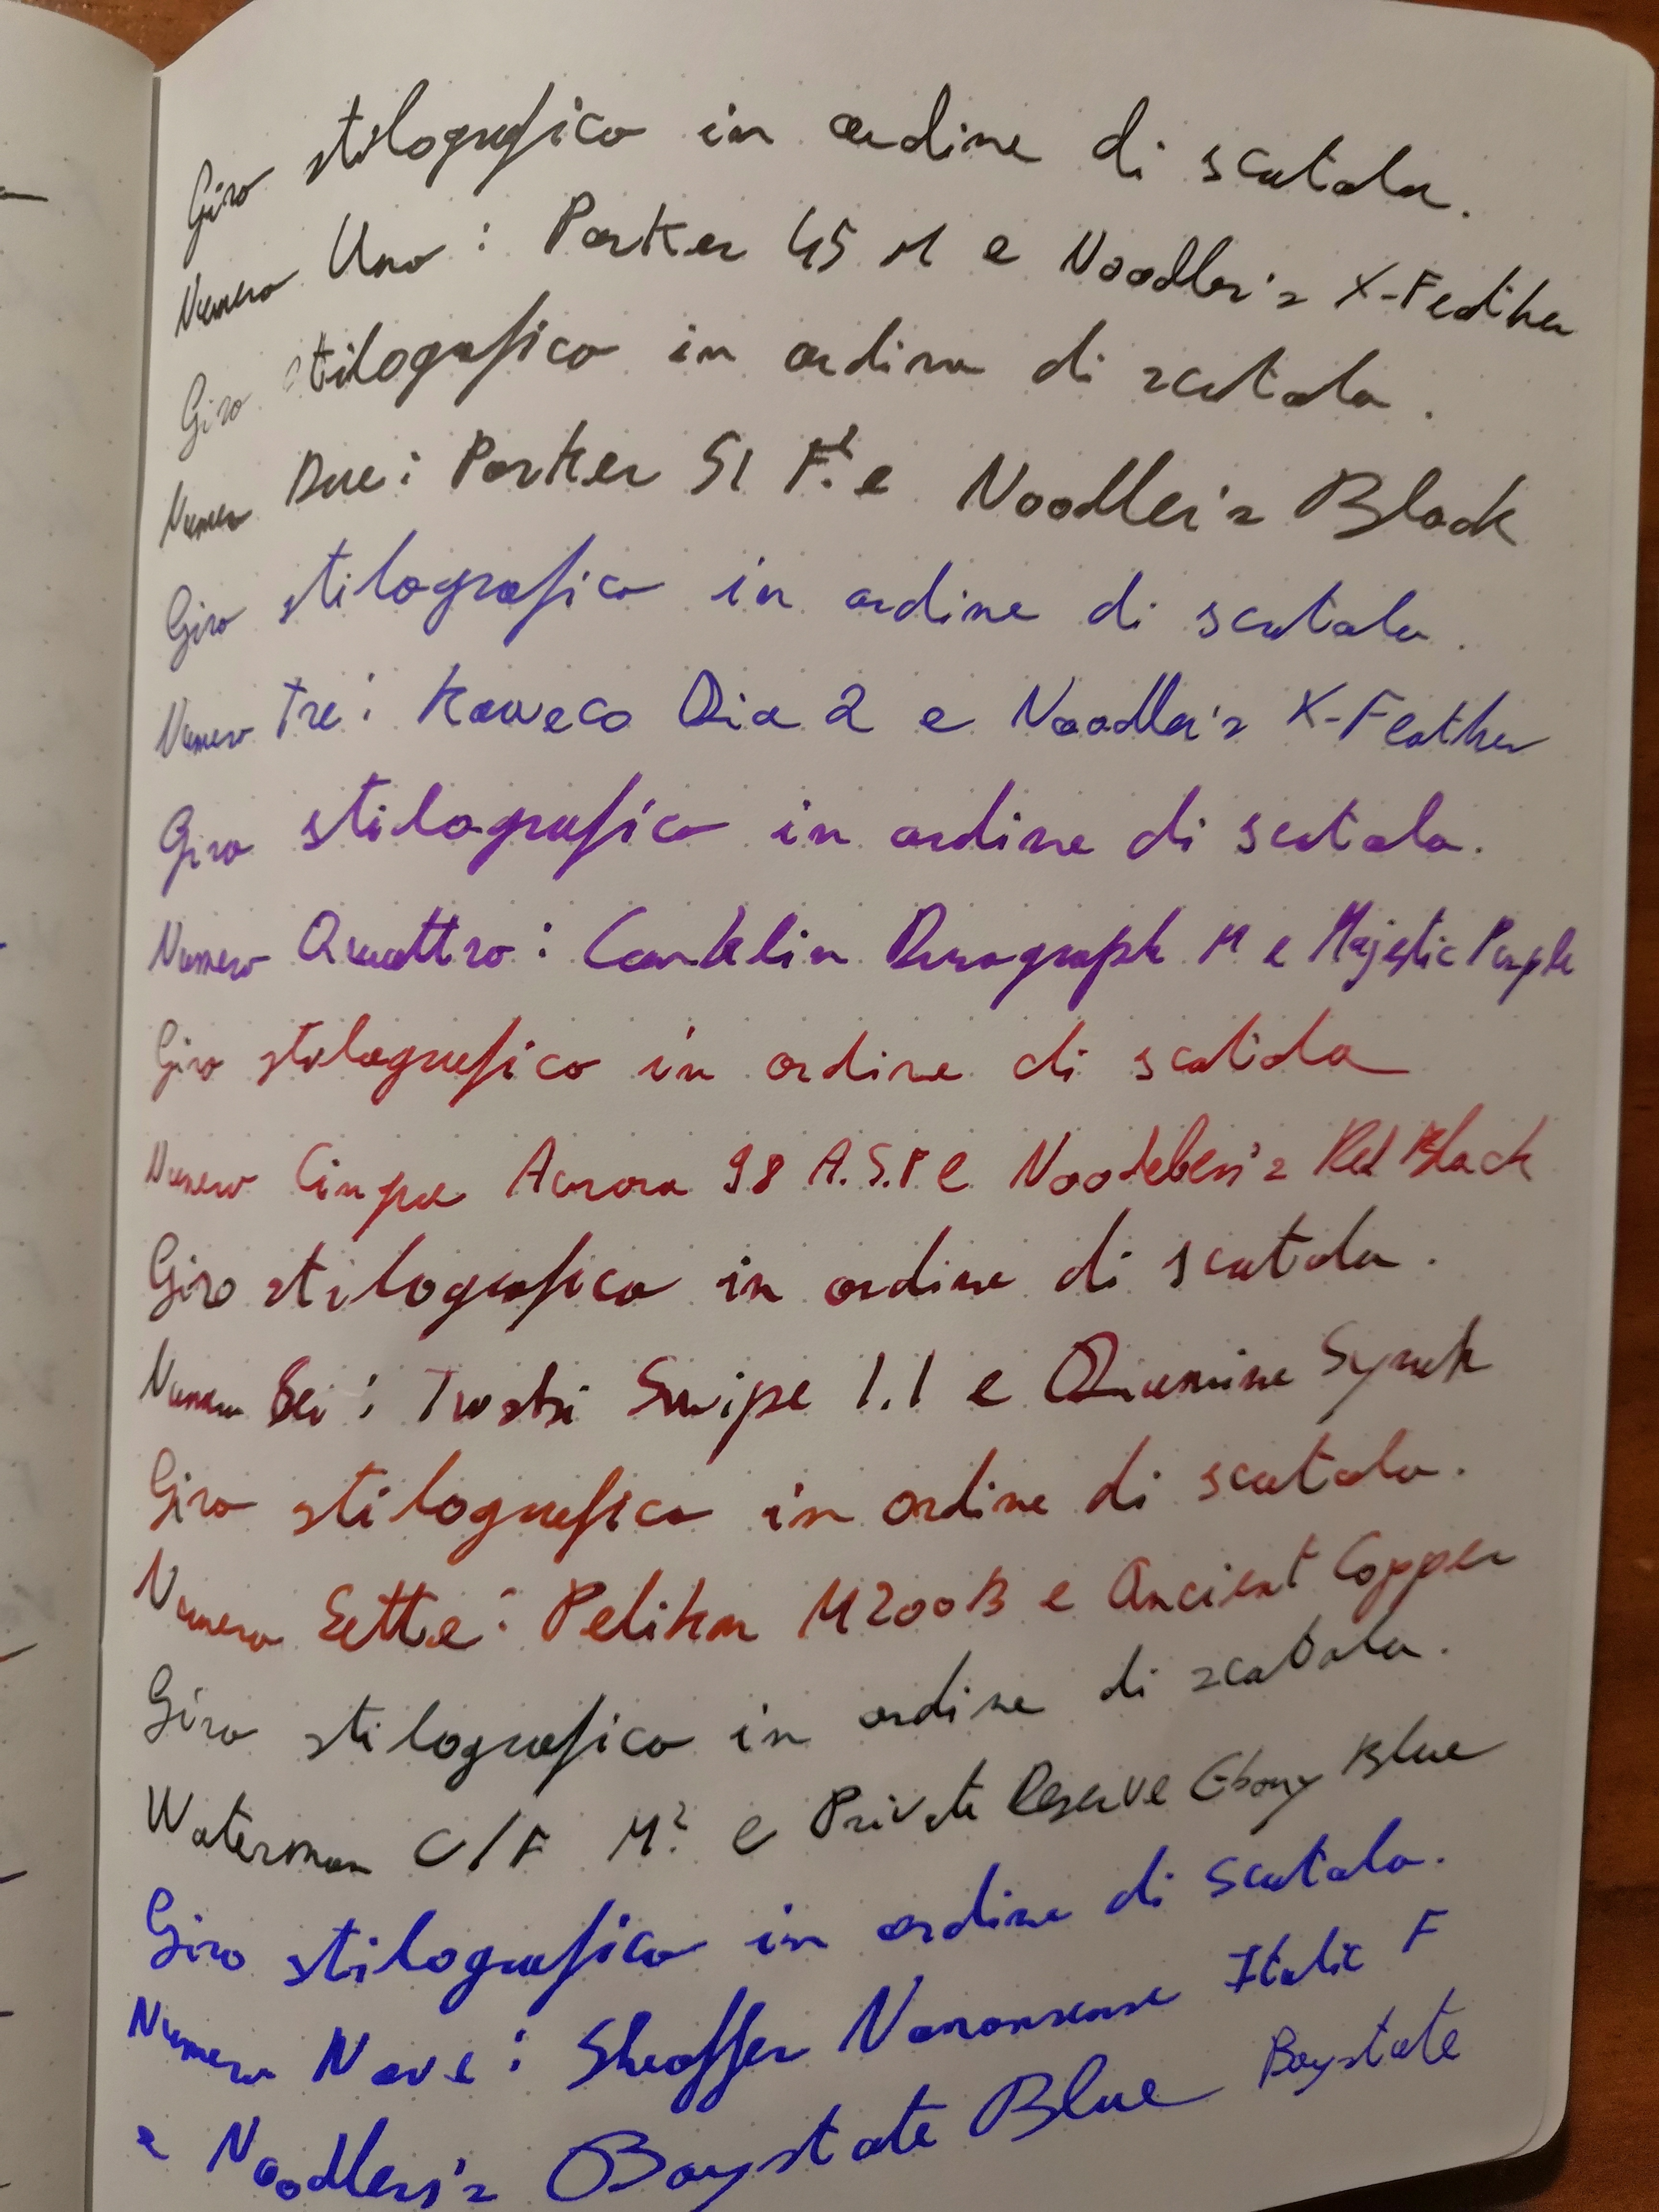 Giro stilografico in ordine di scatola.
Numero Uno: Parker 45 M e Noodler's X-Feather
Giro stilografico in ordine di scatola.
Numero Due: Parker 51 F? e Noodler's Black
Giro stilografico in ordine di scatola.
Numero Tre: Kaweco Dia 2 e Noodler's X-Feather
Giro stilografico in ordine di scatola.
Numero Quattro: Conklin Duragraph M e Majestic Purple
Giro stilografico in ordine di scatola
Numero Cinque Aurora 98 A.S.F e Red Black
Giro stilografico in ordine di scatola.
Numero Sei: Twsbi Swipe 1.1 e Diamine Syrah
Giro stilografico in ordine di scatola.
Numero Sette: Pelikan M200B e Ancient Copper
Giro stilografico in ordine di scatola.
Waterman C/F M? e Private Reserve Ebony Blue
Giro stilografico in ordine di scatola.
Numero Nove: Sheaffer Nononsense Italic F
e Noodler's Baystate Blue Baystate